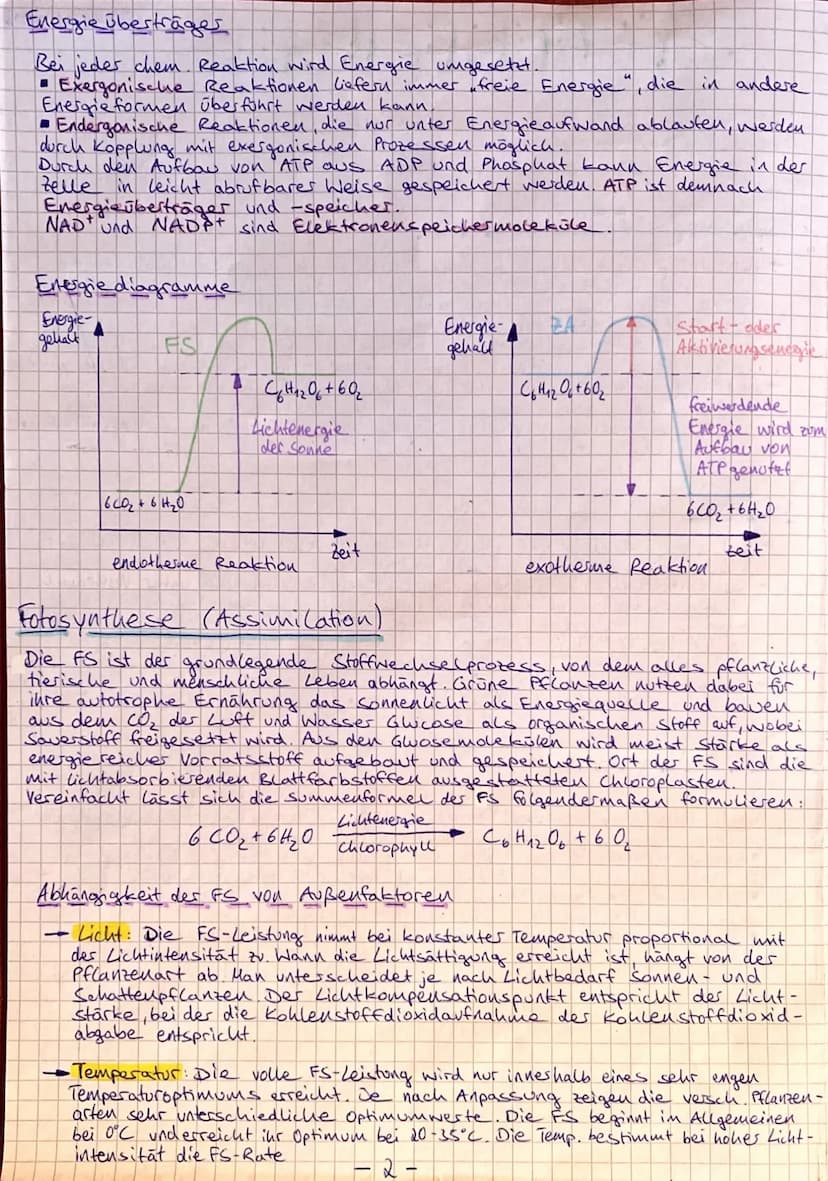 Energieüberträger
Bei jeder chem. Reaktion wird Energie umgesetzt.
▪ Exergonische Reaktionen liefern immer „freie Energie“, die in andere
Energieformen überführt werden kann.
▪ Endergonische Reaktionen, die nur unter Energieaufwand ablaufen, werden
durch Kopplung mit exergonischen Prozessen möglich.
Durch den Aufbau von ATP aus ADP und Phosphat kann Energie in der
Zelle in leicht abrufbarer Weise gespeichert werden. ATP ist demnach
Energieüberträger und -speicher.
NAD⁺ und NADP⁺ sind Elektronenspeichermoleküle.
Energiediagramme
Energie-
gehalt
FS
C₆H₁₂O₆ + 6O₂
Lichtenergie
der Sonne
6CO₂ + 6H₂O
Zeit
endotherme Reaktion
Energie-
gehalt
ZA
Start- oder
Aktivierungsenergie
C₆H₁₂O₆ + 6O₂
freiwerdende
Energie wird zum
Aufbau von
ATP genutzt
6CO₂ + 6H₂O
Zeit
exotherme Reaktion
Fotosynthese (Assimilation)
Die FS ist der grundlegende Stoffwechselprozess, von dem alles pflanzliche,
tierische und menschliche Leben abhängt. Grüne Pflanzen nutzen dabei für
ihre autotrophe Ernährung das Sonnenlicht als Energiequelle und bauen
aus dem CO₂ der Luft und Wasser Glucose als organischen Stoff auf, wobei
Sauerstoff freigesetzt wird. Aus den Glucosemolekülen wird meist Stärke als
energiereicher Vorratsstoff aufgebaut und gespeichert. Ort der FS sind die
mit lichtabsorbierenden Blattfarbstoffen ausgestatteten Chloroplasten.
Vereinfacht lässt sich die Summenformel der FS folgendermaßen formulieren:
Lichtenergie
6 CO₂ + 6H₂O → C₆H₁₂O₆ + 6 O₂
Chlorophyll
Abhängigkeit der FS von Außenfaktoren
→ Licht: Die FS-Leistung nimmt bei konstanter Temperatur proportional mit
der Lichtintensität zu. Wann die Lichtsättigung erreicht ist, hängt von der
Pflanzenart ab. Man unterscheidet je nach Lichtbedarf Sonnen- und
Schattenpflanzen. Der Lichtkompensationspunkt entspricht der Licht-
stärke, bei der die Kohlenstoffdioxidaufnahme der Kohlenstoffdioxid-
abgabe entspricht.
→ Temperatur: Die volle FS-Leistung wird nur innerhalb eines sehr engen
Temperaturoptimums erreicht. Je nach Anpassung zeigen die versch. Pflanzen-
arten sehr unterschiedliche Optimumwerte. Die FS beginnt im Allgemeinen
bei 0°C und erreicht ihr Optimum bei 20-35°C. Die Temp. bestimmt bei hoher Licht-
intensität die FS-Rate
- 2 -